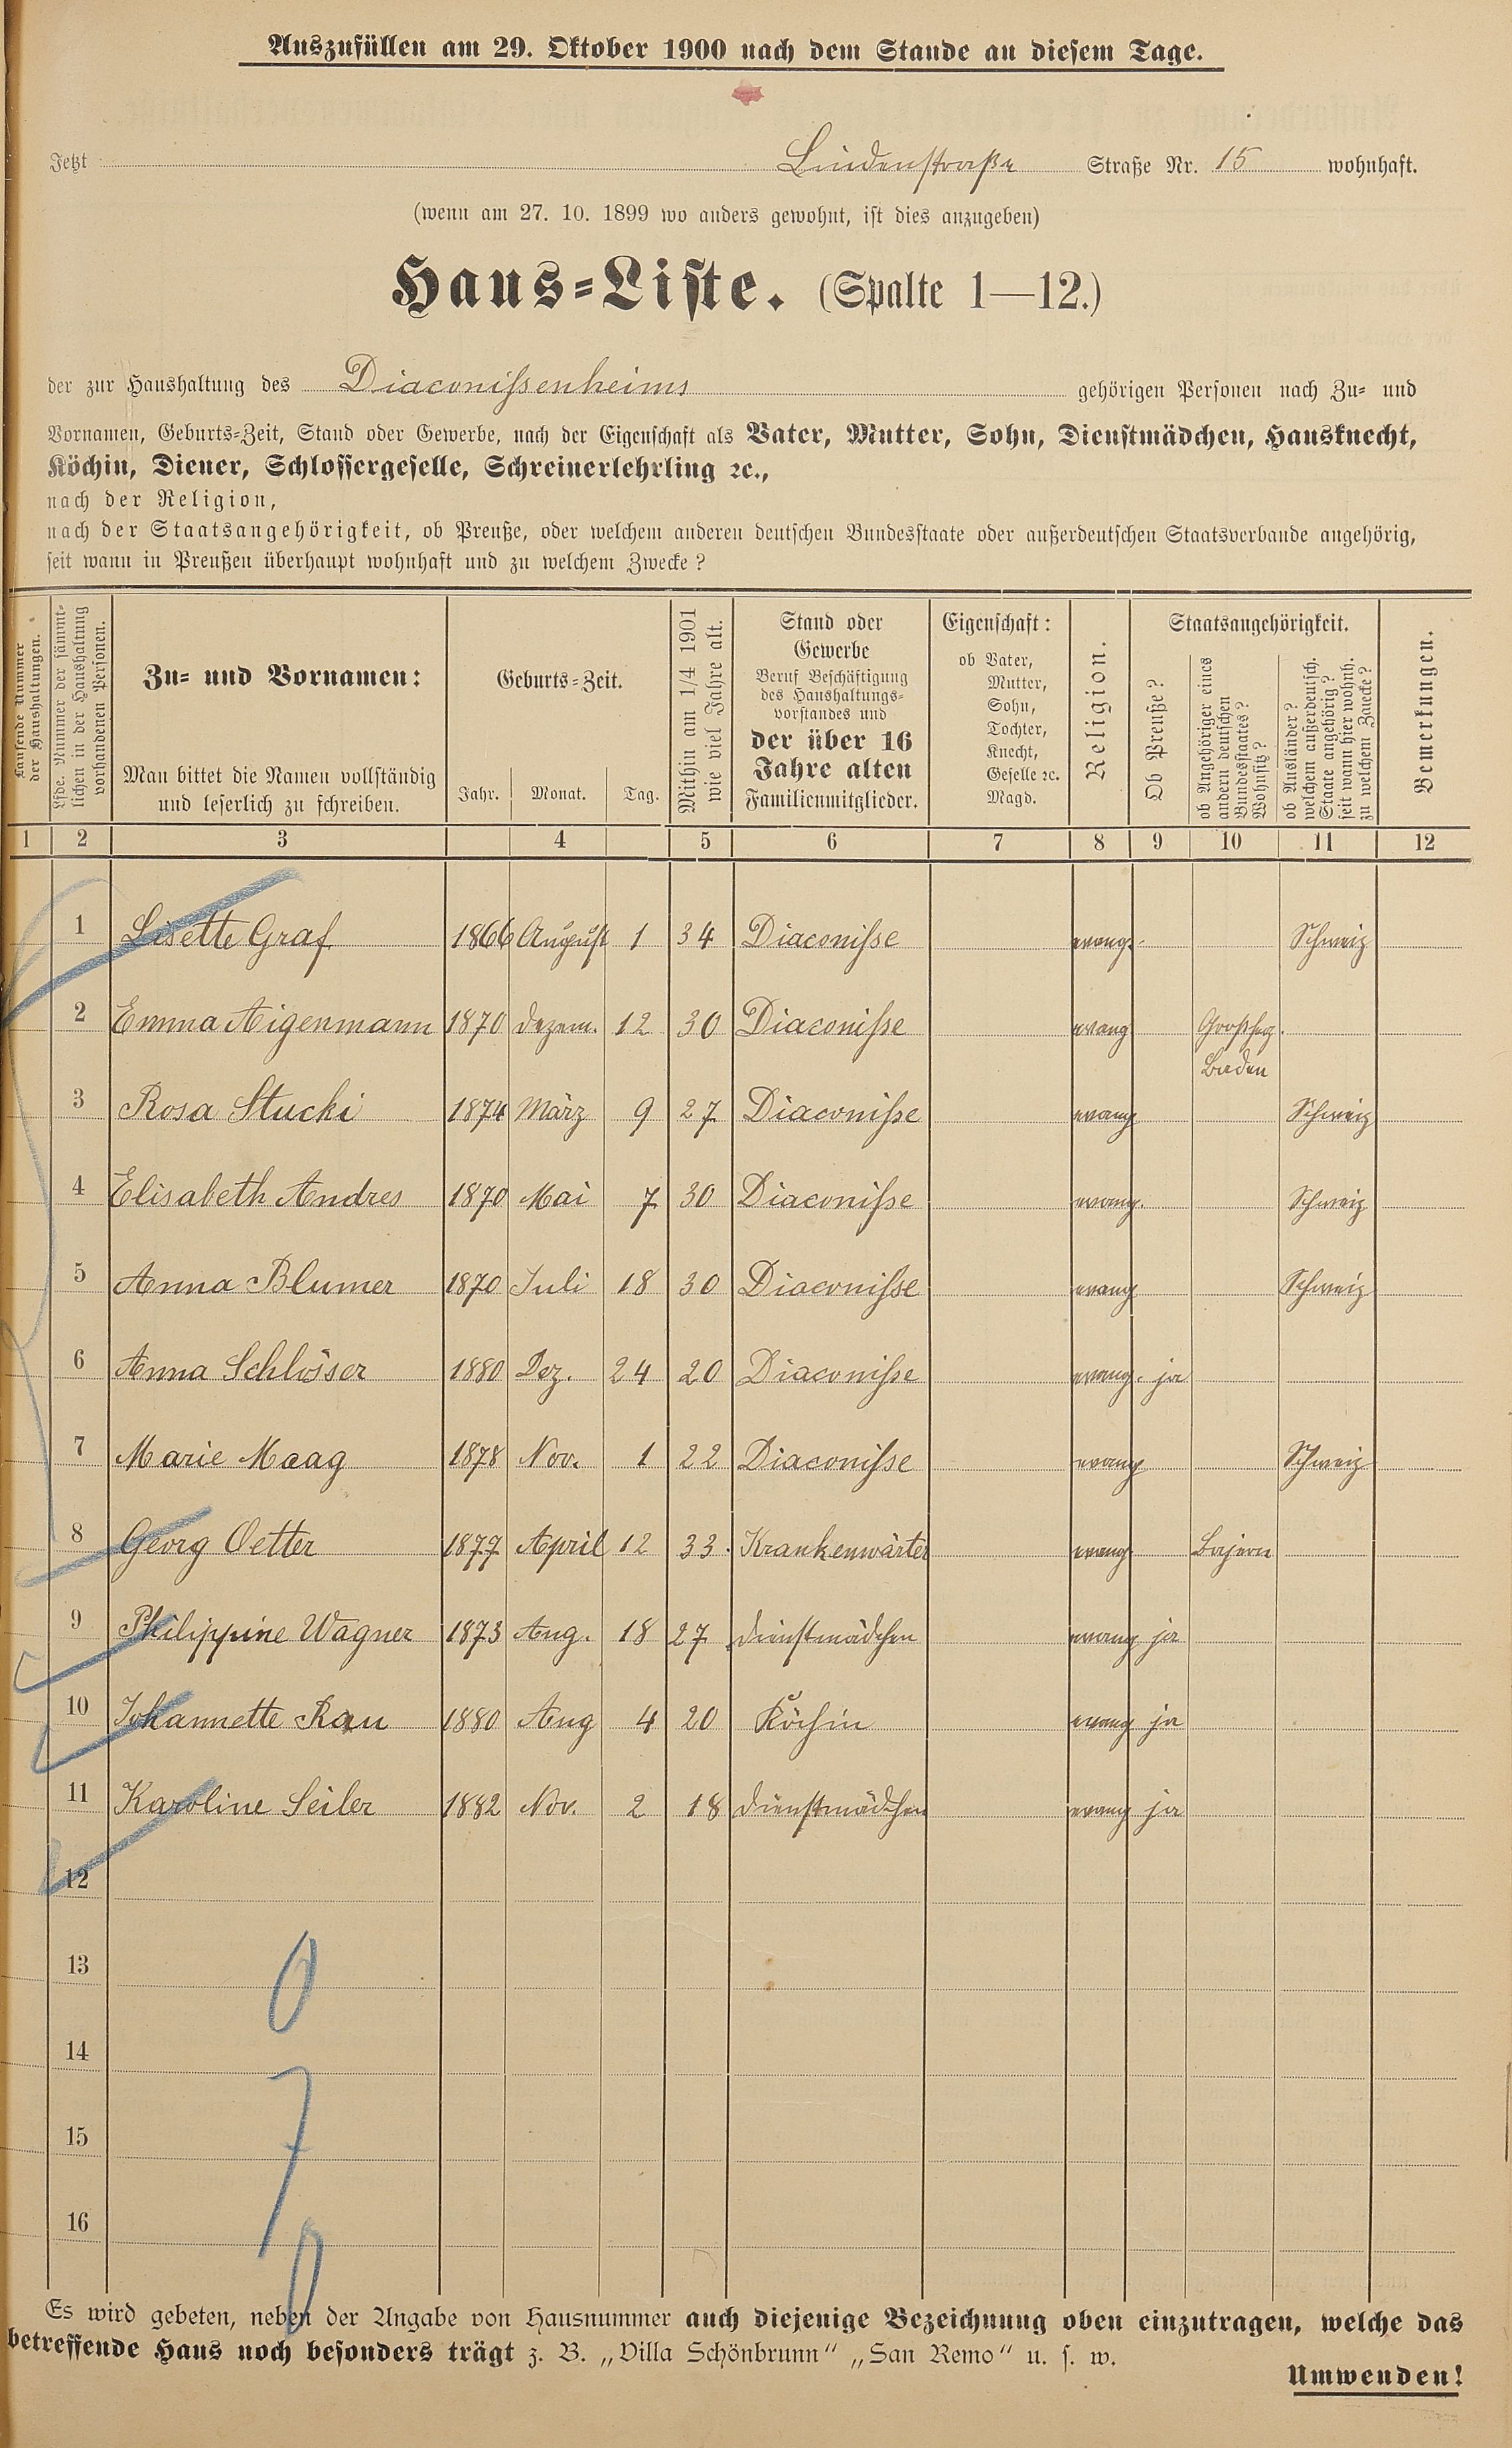 Auszufüllen am 29. Oktober 1900 nach dem Stande an diesem Tage.
Jetzt Lindenstraße Straße Nr. 15 wohnhaft.
(wenn am 27. 10. 1899 wo anders gewohnt, ist dies anzugeben)
Haus-Liste. (Spalte 1—12.)
der zur Haushaltung des Diaconissenheims gehörigen Personen nach Zu- und
Vornamen, Geburts-Zeit, Stand oder Gewerbe, nach der Eigenschaft als Vater, Mutter, Sohn, Dienstmädchen, Hausknecht,
Köchin, Diener, Schlossergeselle, Schreinerlehrling ꝛc.,
nach der Religion,
nach der Staatsangehörigkeit, ob Preuße, oder welchem anderen deutschen Bundesstaate oder außerdeutschen Staatsverbande angehörig,
seit wann in Preußen überhaupt wohnhaft und zu welchem Zwecke?
Laufende Nummer
der Haushaltungen.
Lfde. Nummer der sämmt-
lichen in der Haushaltung
vorhandenen Personen.
Zu- und Vornamen:
Man bittet die Namen vollständig
und leserlich zu schreiben.
Geburts-Zeit.
Jahr. Monat. Tag.
Mithin am 1/4 1901
wie viel Jahre alt.
Stand oder
Gewerbe
Beruf Beschäftigung
des Haushaltungs-
vorstandes und
der über 16
Jahre alten
Familienmitglieder.
Eigenschaft:
ob Vater,
Mutter,
Sohn,
Tochter,
Knecht,
Geselle ꝛc.
Magd.
Religion.
Staatsangehörigkeit.
Ob Preuße?
ob Angehöriger eines
andern deutschen
Bundesstaates?
Wohnsitz?
ob Ausländer?
welchem außerdeutsch.
Staate angehörig?
seit wann hier wohnh.
zu welchem Zwecke?
Bemerkungen.
1 2 3 4 5 6 7 8 9 10 11 12
1 Lisette Graf 1866 August 1 34 Diaconisse evang. Schweiz
2 Emma Aigenmann 1870 Dezem. 12 30 Diaconisse evang Großhzg.
Baden
3 Rosa Stucki 1874 März 9 27 Diaconisse evang Schweiz
4 Elisabeth Andres 1870 Mai 7 30 Diaconisse evang. Schweiz
5 Anna Blumer 1870 Juli 18 30 Diaconisse evang Schweiz
6 Anna Schlösser 1880 Dez. 24 20 Diaconisse evang. ja
7 Marie Maag 1878 Nov. 1 22 Diaconisse evang Schweiz
8 Georg Oetter 1877 April 12 33. Krankenwärter evang Bajern
9 Philippine Wagner 1873 Aug. 18 27 Dienstmädchen evang ja
10 Johannette Rau 1880 Aug 4 20 Köchin evang ja
11 Karoline Seiler 1882 Nov. 2 18 Dienstmädchen evang ja
12
13
0
14
7
15
16
0
Es wird gebeten, neben der Angabe von Hausnummer auch diejenige Bezeichnung oben einzutragen, welche das
betreffende Haus noch besonders trägt z. B. „Villa Schönbrunn“ „San Remo“ u. s. w.
Umwenden!